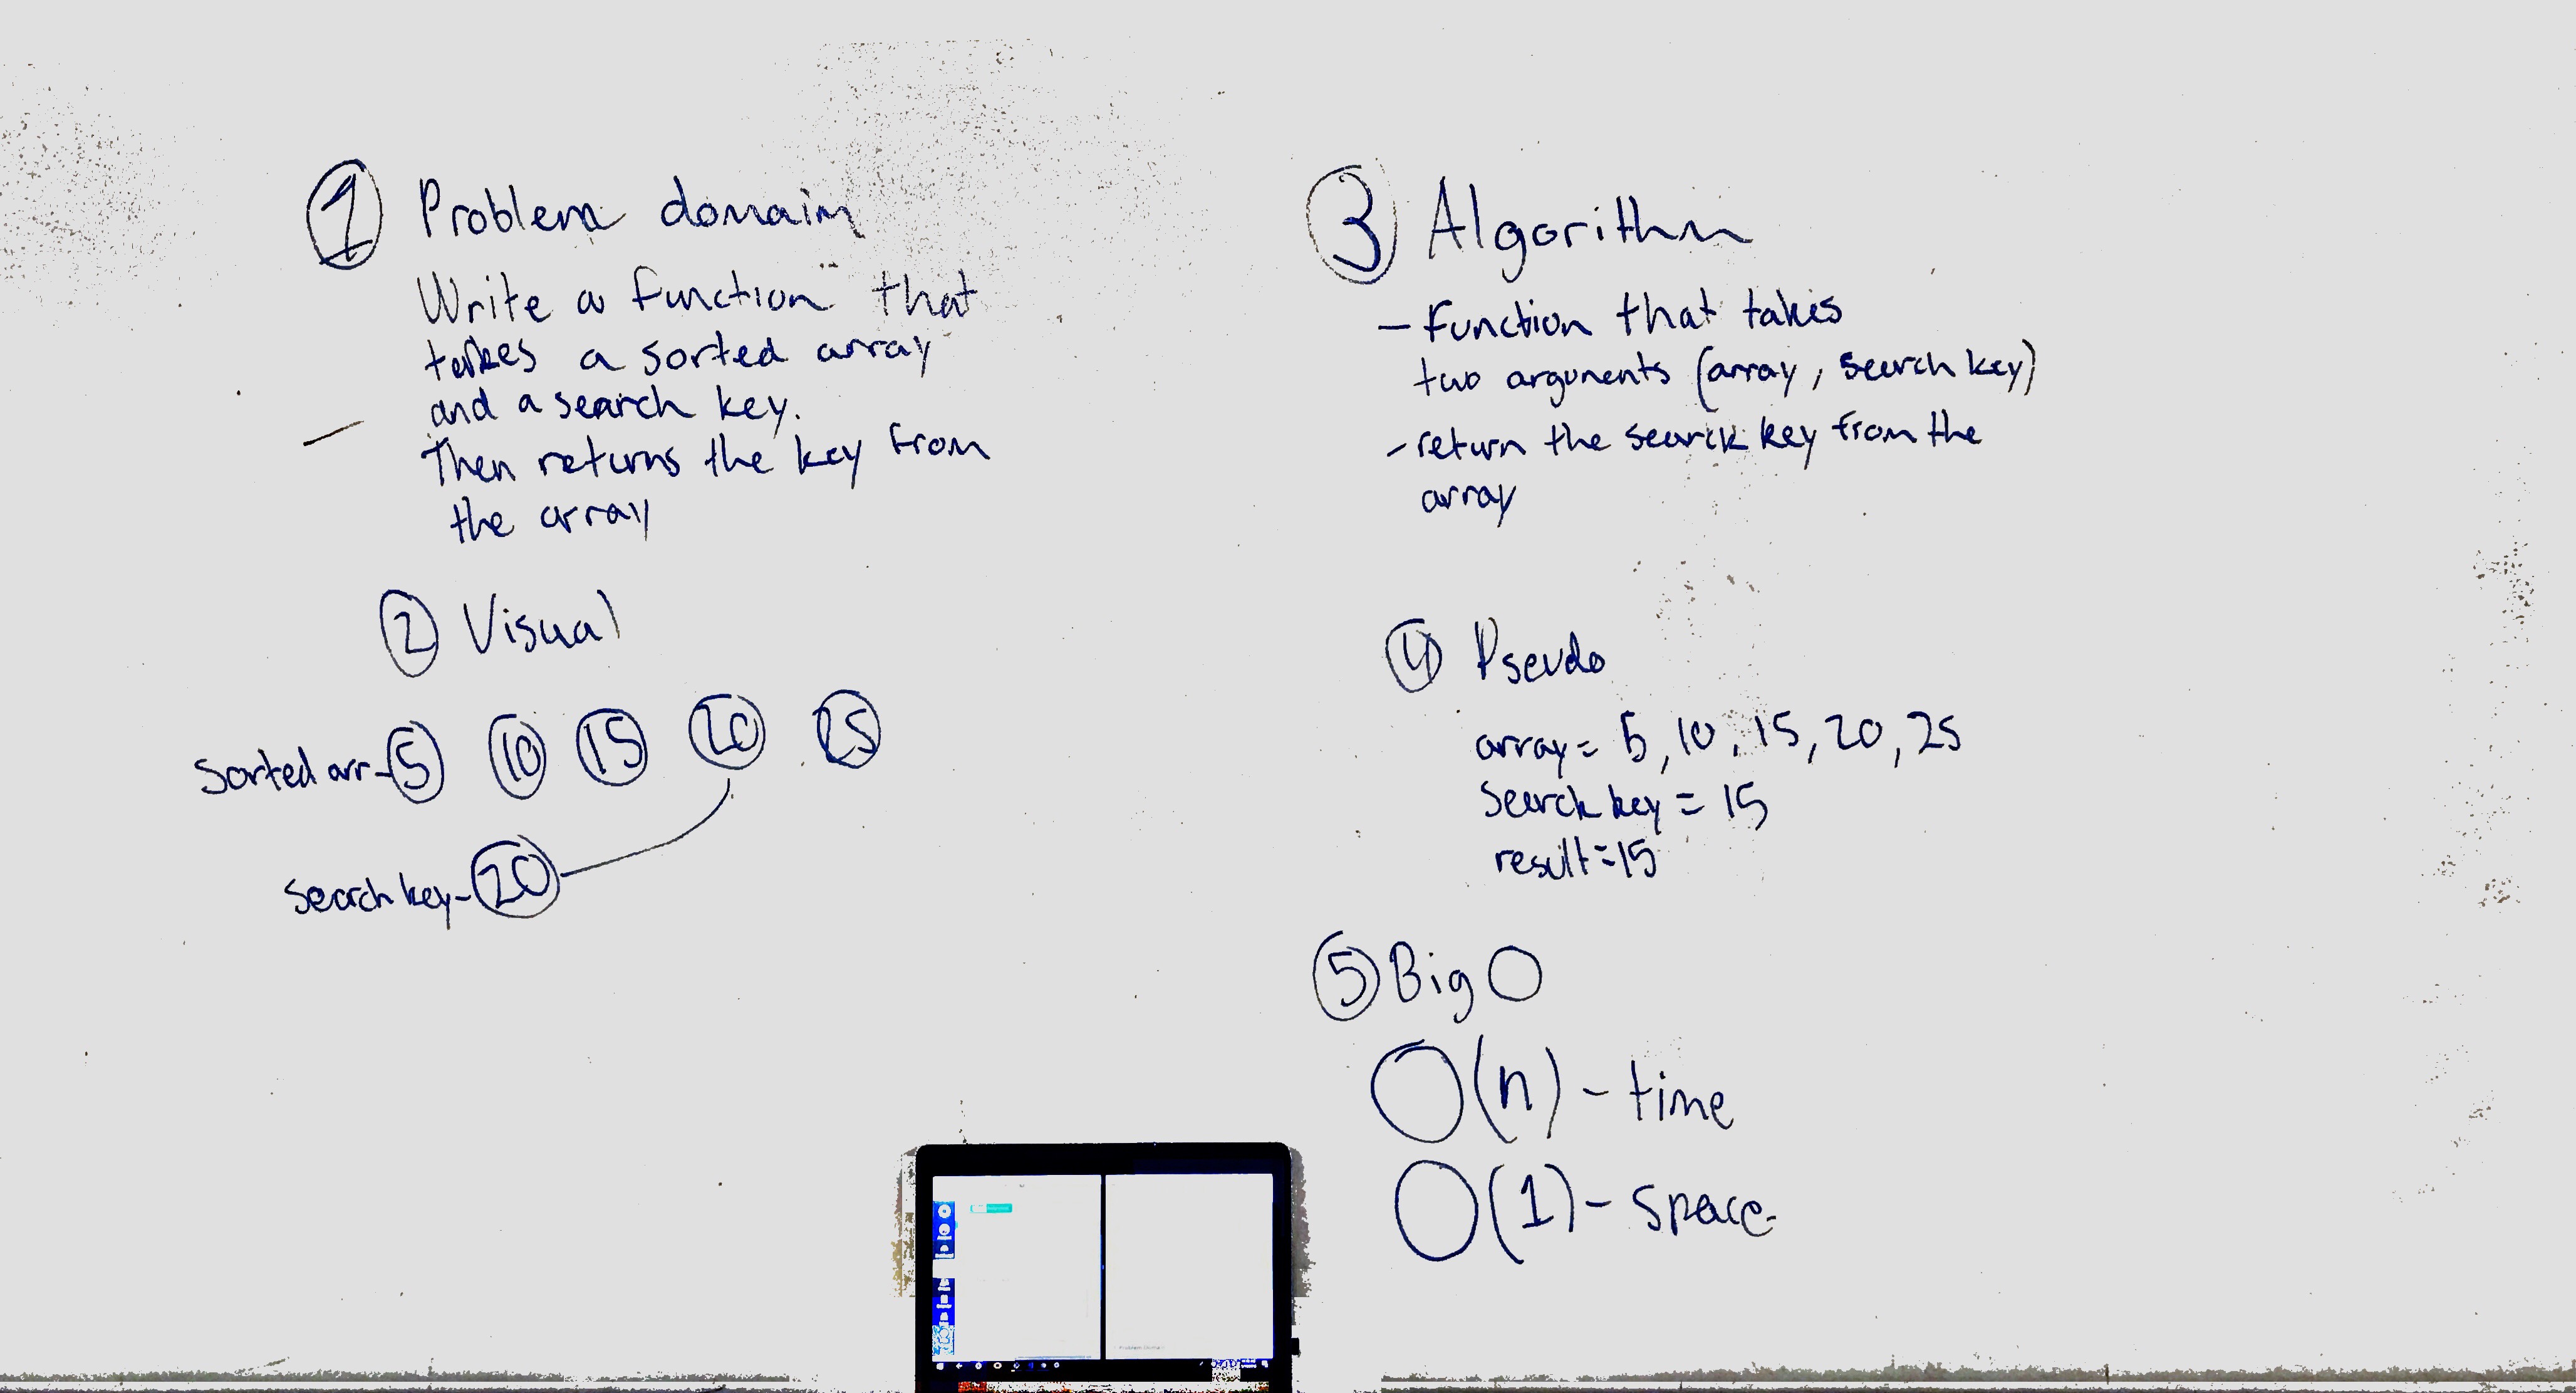 1 Problem domain
Write a function that
takes a sorted array
and a search key.
Then returns the key from
the array
2 Visual
Sorted arr - 5 10 15 20 25
Search key - 20
3 Algorithm
- function that takes
two arguments (array, search key)
- return the search key from the
array
4 Pseudo
array = 5, 10, 15, 20, 25
Search key = 15
result = 15
5 Big O
O(n) - time
O(1) - space